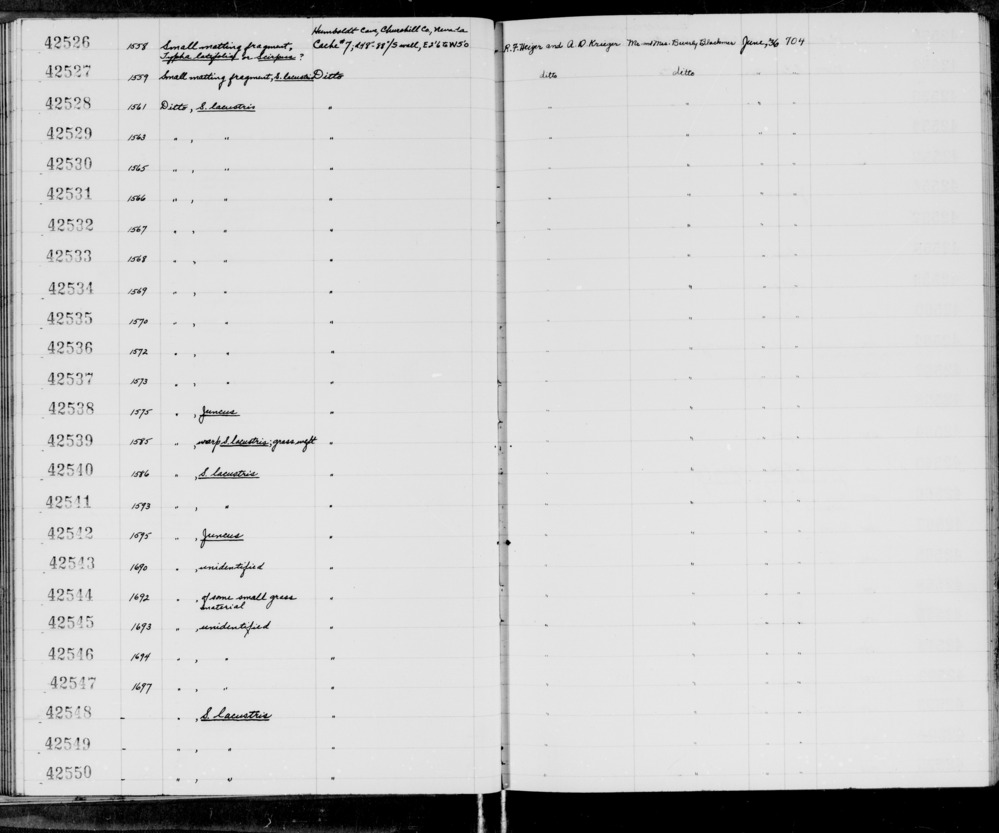 Humboldt Cave, Churchill Co, Nevada
42526 1558 Small matting fragment, Cache #7, 458"-88" /S wall, E2'6 to W5'0 R.F. Heizer and A.D. Krieger Mr. and Mrs. Beverly Blackmer June, 36 704
Typha latifolia or Scirpus?
42527 1559 Small matting fragment, S. lacustris Ditto ditto ditto " "
42528 1561 Ditto, S. lacustris " " " " "
42529 1563 " , " " " " " "
42530 1565 " , " " " " " "
42531 1566 " , " " " " " "
42532 1567 " , " " " " " "
42533 1568 " , " " " " " "
42534 1569 " , " " " " " "
42535 1570 " , " " " " " "
42536 1572 " , " " " " " "
42537 1573 " , " " " " " "
42538 1575 " , Juncus " " " " "
42539 1585 " , warp S. lacustris; grass weft " " " " "
42540 1586 " , S. lacustris " " " " "
42541 1593 " , " " " " " "
42542 1595 " , Juncus " " " " "
42543 1690 " , unidentified " " " " "
42544 1692 " , of some small grass " " " " "
material
42545 1693 " , unidentified " " " " "
42546 1694 " , " " " " " "
42547 1697 " , " " " " " "
42548 - " , S. lacustris " " " " "
42549 - " , " " " " " "
42550 - " , " " " " " "